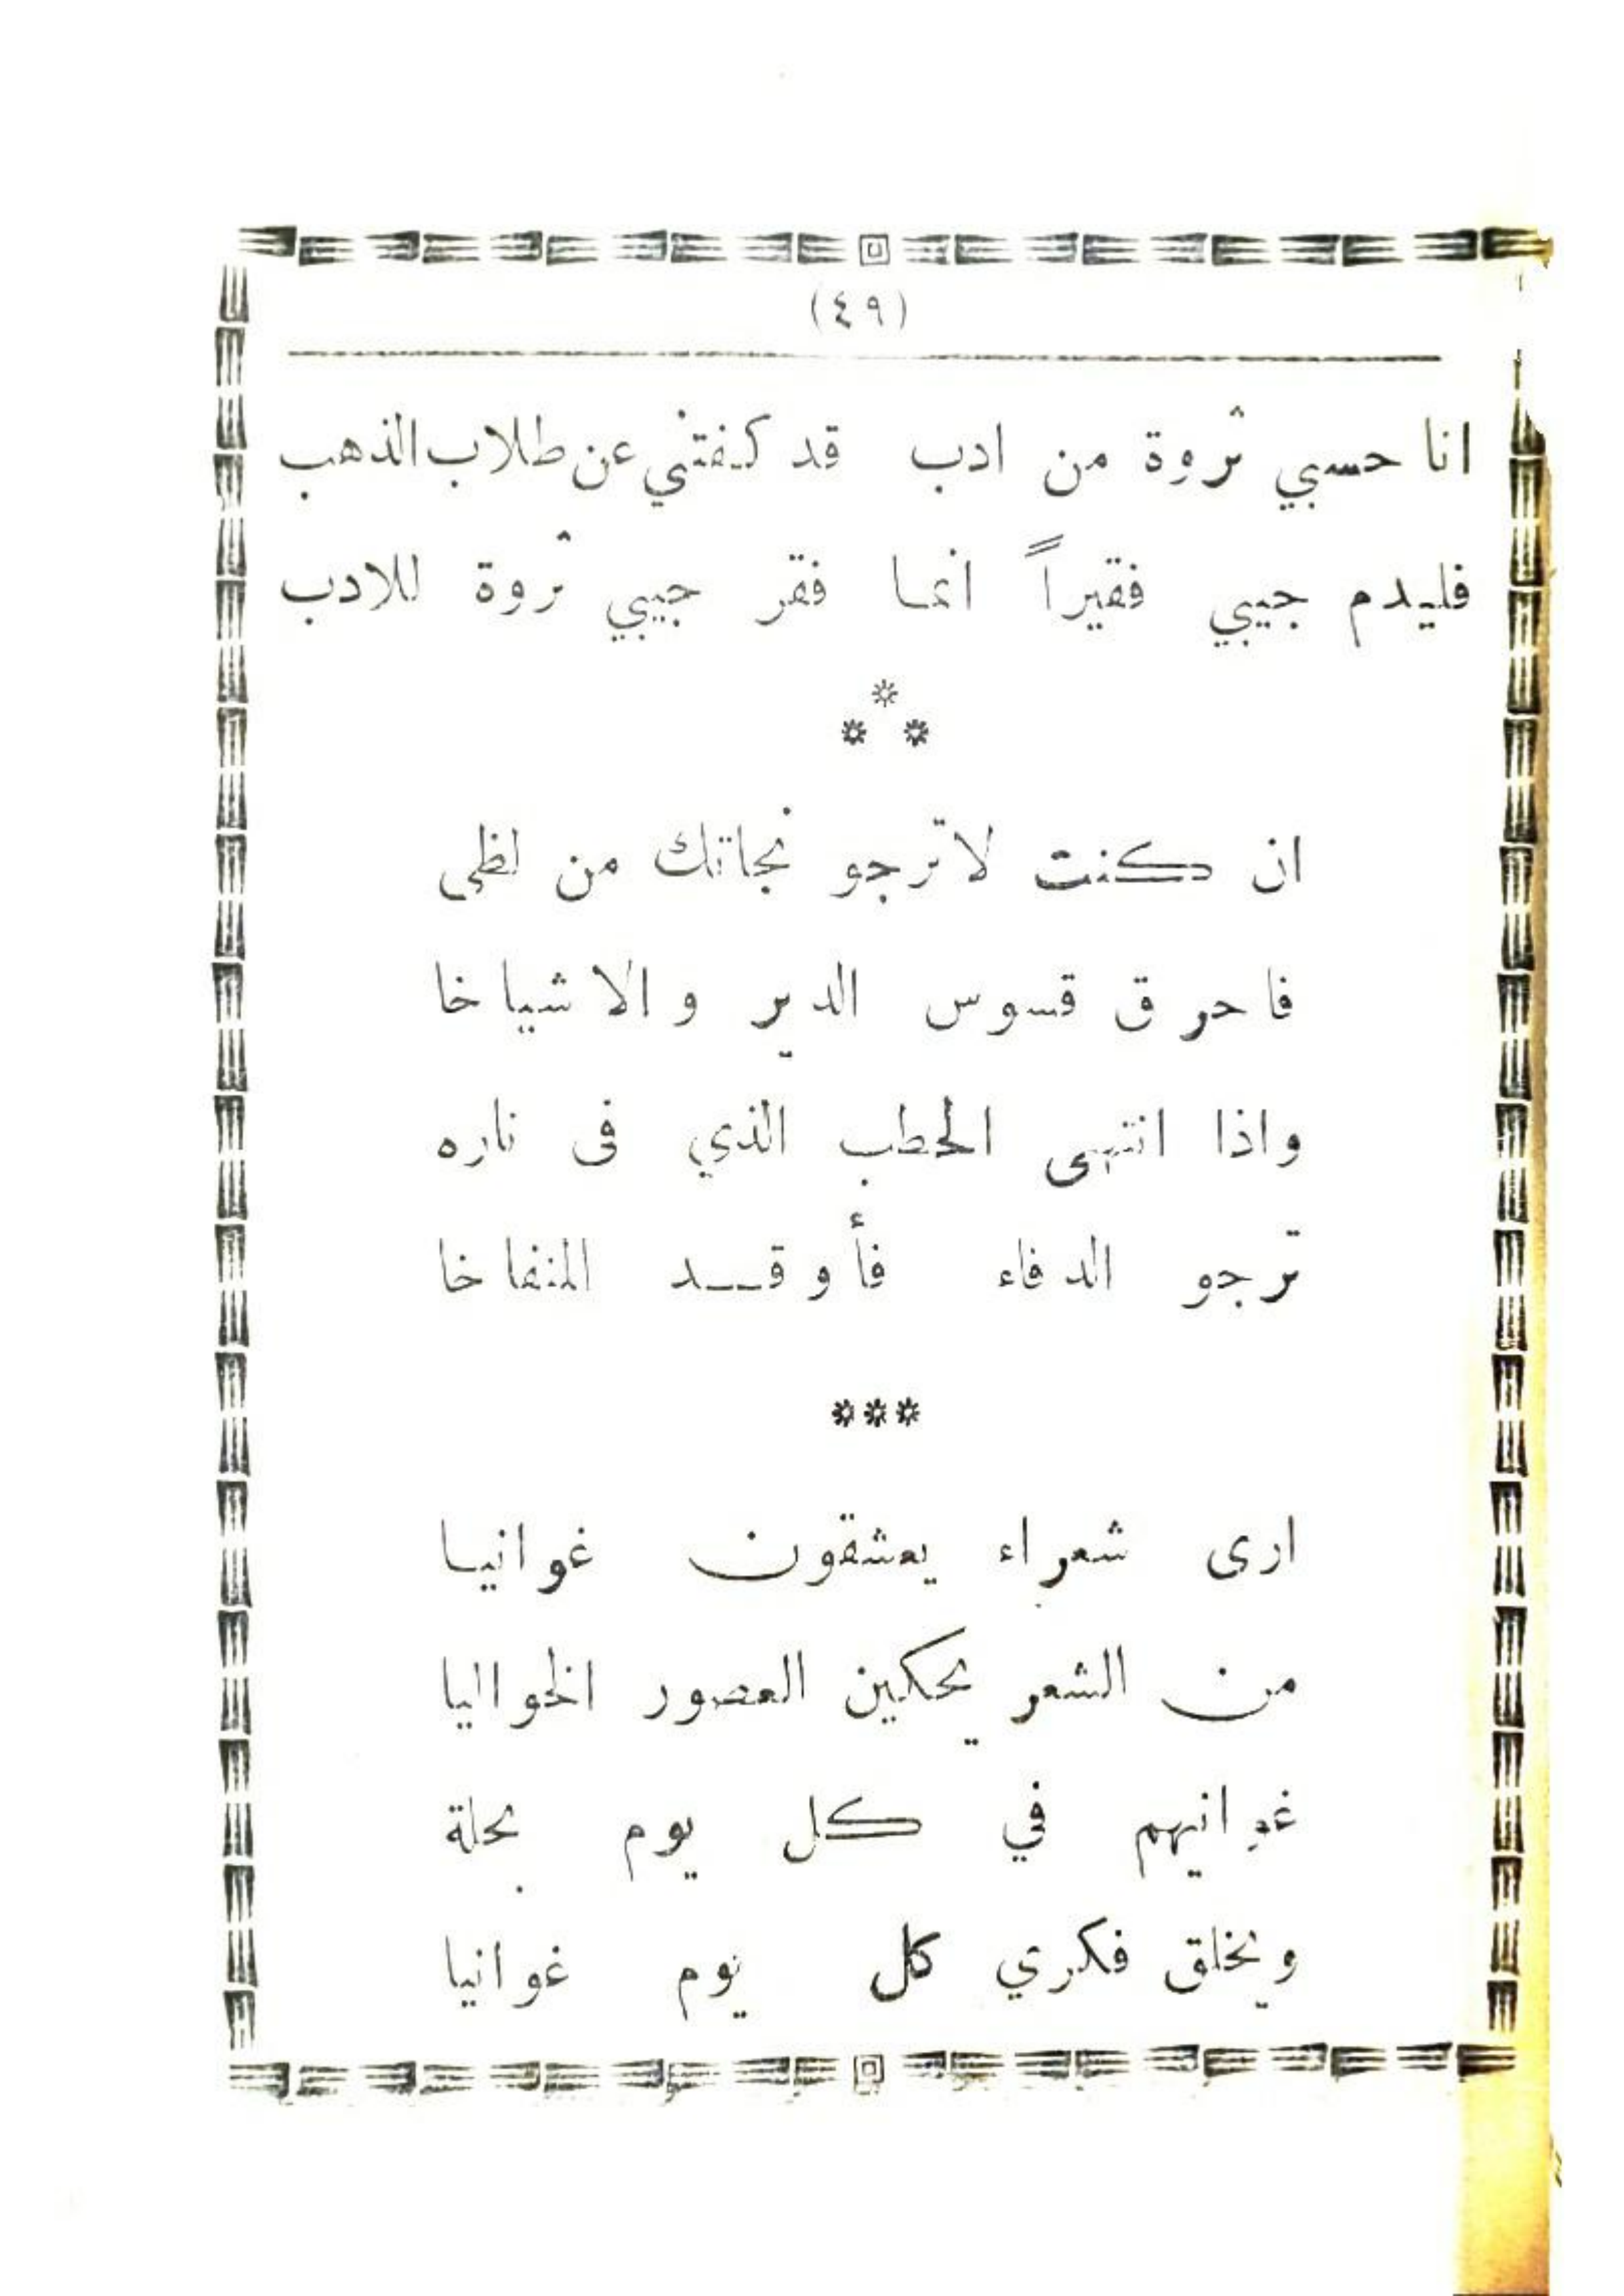 (٤٩)
انا حسبي ثروة من ادب قد كفتني عن طلاب الذهب
فليدم جيبي فقيراً انما فقر جيبي ثروة للادب
*
* *
ان كنت لا ترجو نجاتك من لظى
فاحرق قسوس الدير والاشياخا
واذا انتهى الحطب الذي فى ناره
ترجو الدفاء فأوقد المنفاخا
***
ارى شعراء يعشقون غوانيا
من الشعر يحكين العصور الخواليا
غوانيهم في كل يوم بحلة
ويخلق فكري كل يوم غوانيا